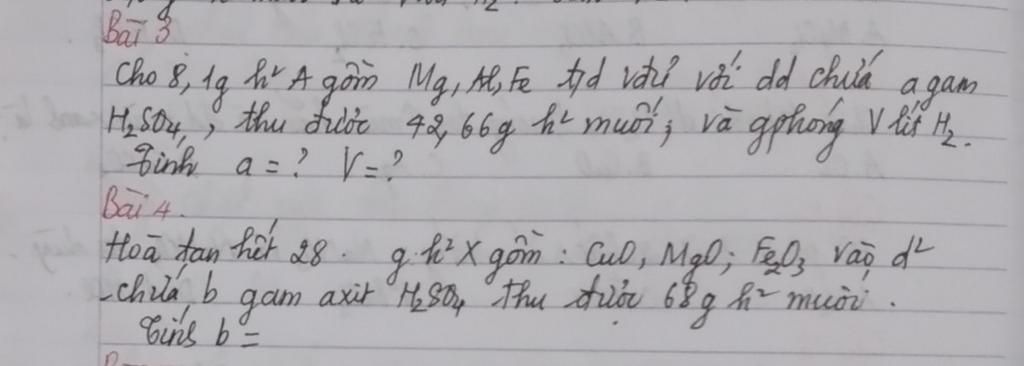 Bài 3
Cho 8,1g h² A gồm Mg, Al, Fe t/d vđủ với dd chứa a gam
H₂SO₄, thu được 42,66g h² muối; và gphóng V lít H₂.
Tính a = ? V = ?
Bài 4.
Hoà tan hết 28. g h² X gồm: CuO, MgO; Fe₂O₃ vào d²
chứa b gam axit H₂SO₄ thu được 68g h² muối.
Tính b =